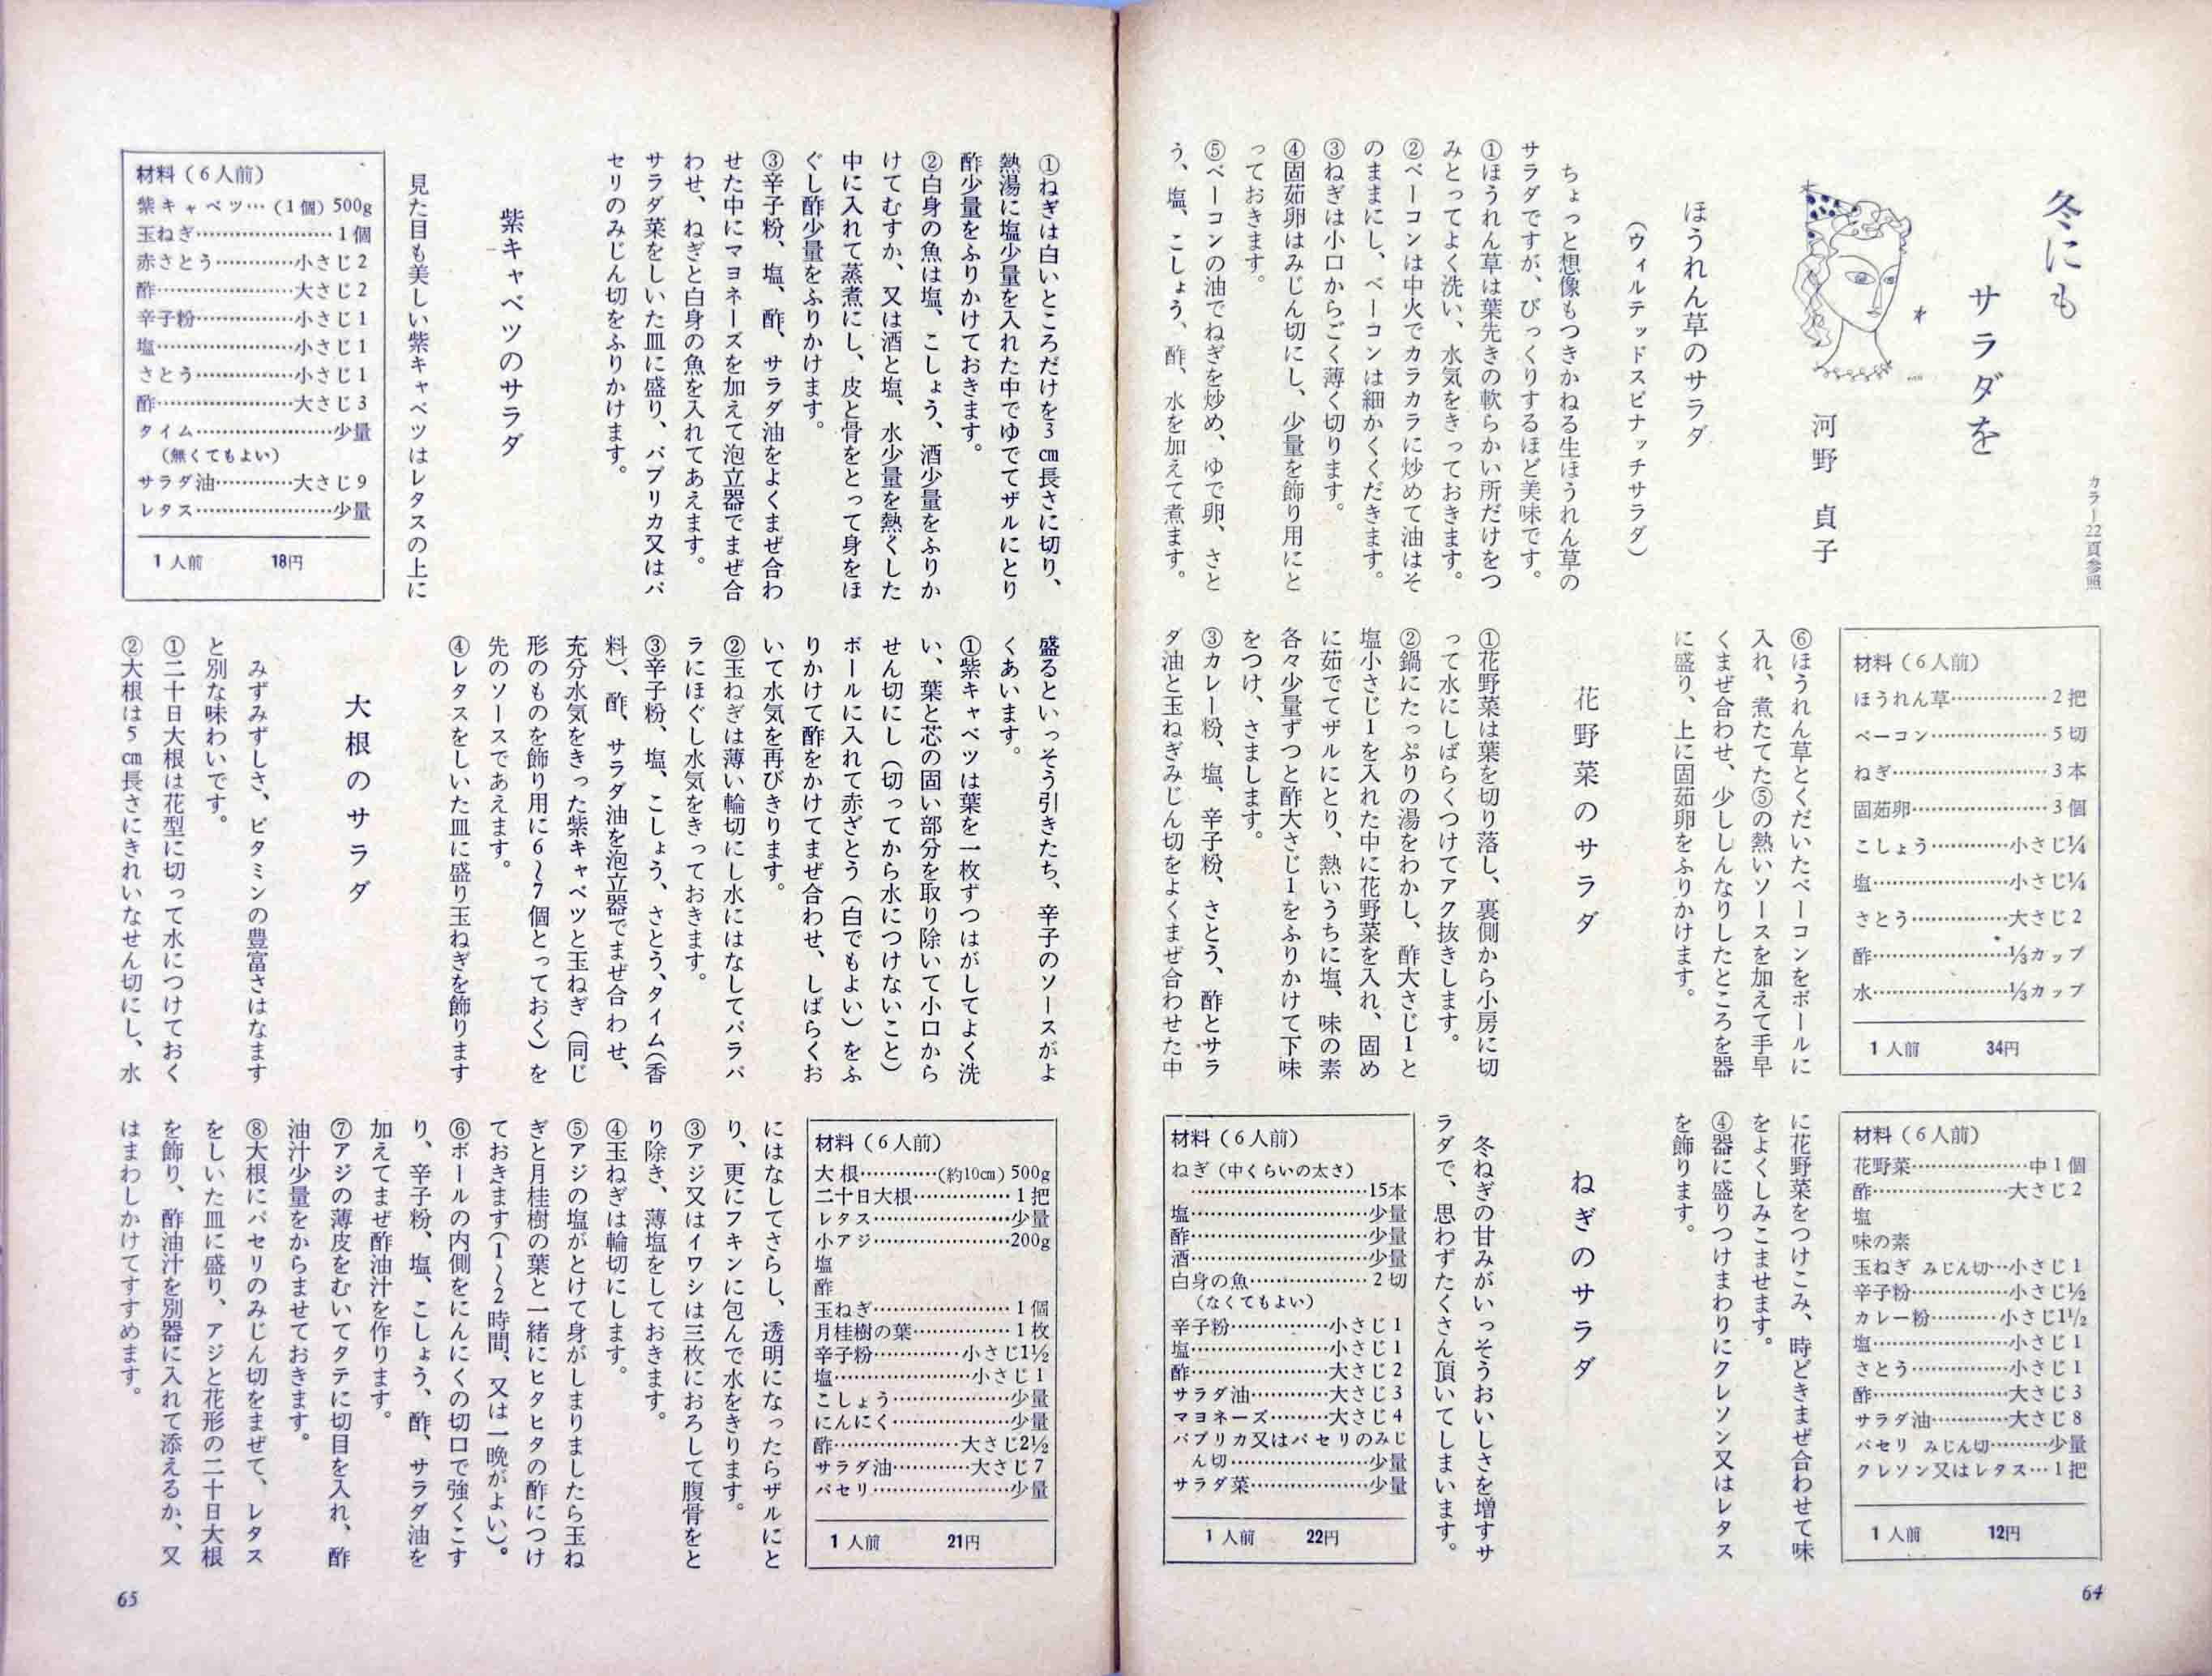 カラー22頁参照
冬にも
サラダを
河野 貞子
ほうれん草のサラダ
(ウィルテッドスピナッチサラダ)
ちょっと想像もつきかねる生ほうれん草の
サラダですが、びっくりするほど美味です。
①ほうれん草は葉先きの軟らかい所だけをつ
みとってよく洗い、水気をきっておきます。
②ベーコンは中火でカラカラに炒めて油はそ
のままにし、ベーコンは細かくくだきます。
③ねぎは小口からごく薄く切ります。
④固茹卵はみじん切にし、少量を飾り用にと
っておきます。
⑤ベーコンの油でねぎを炒め、ゆで卵、さと
う、塩、こしょう、酢、水を加えて煮ます。
材料(6人前)
ほうれん草……………2把
ベーコン………………5切
ねぎ……………………3本
固茹卵…………………3個
こしょう…………小さじ¼
塩…………………小さじ¼
さとう……………大さじ2
酢…………………⅓カップ
水…………………⅓カップ
1人前 34円
⑥ほうれん草とくだいたベーコンをボールに
入れ、煮たてた⑤の熱いソースを加えて手早
くまぜ合わせ、少ししんなりしたところを器
に盛り、上に固茹卵をふりかけます。
花野菜のサラダ
①花野菜は葉を切り落し、裏側から小房に切
って水にしばらくつけてアク抜きします。
②鍋にたっぷりの湯をわかし、酢大さじ1と
塩小さじ1を入れた中に花野菜を入れ、固め
に茹でてザルにとり、熱いうちに塩、味の素
各々少量ずつと酢大さじ1をふりかけて下味
をつけ、さまします。
③カレー粉、塩、辛子粉、さとう、酢とサラ
ダ油と玉ねぎみじん切をよくまぜ合わせた中
材料(6人前)
花野菜………………中1個
酢…………………大さじ2
塩
味の素
玉ねぎ みじん切…小さじ1
辛子粉……………小さじ½
カレー粉…………小さじ1½
塩…………………小さじ1
さとう……………小さじ1
酢…………………大さじ3
サラダ油…………大さじ8
パセリ みじん切………少量
クレソン又はレタス…1把
1人前 12円
に花野菜をつけこみ、時どきまぜ合わせて味
をよくしみこませます。
④器に盛りつけまわりにクレソン又はレタス
を飾ります。
ねぎのサラダ
冬ねぎの甘みがいっそうおいしさを増すサ
ラダで、思わずたくさん頂いてしまいます。
材料(6人前)
ねぎ(中くらいの太さ)
………………………15本
塩………………………少量
酢………………………少量
酒………………………少量
白身の魚………………2切
(なくてもよい)
辛子粉……………小さじ1
塩…………………小さじ1
酢…………………大さじ2
サラダ油…………大さじ3
マヨネーズ………大さじ4
パプリカ又はパセリのみじ
ん切……………………少量
サラダ菜………………少量
1人前 22円
64
①ねぎは白いところだけを3cm長さに切り、
熱湯に塩少量を入れた中でゆでてザルにとり
酢少量をふりかけておきます。
②白身の魚は塩、こしょう、酒少量をふりか
けてむすか、又は酒と塩、水少量を熱くした
中に入れて蒸煮にし、皮と骨をとって身をほ
ぐし酢少量をふりかけます。
③辛子粉、塩、酢、サラダ油をよくまぜ合わ
せた中にマヨネーズを加えて泡立器でまぜ合
わせ、ねぎと白身の魚を入れてあえます。
サラダ菜をしいた皿に盛り、パプリカ又はパ
セリのみじん切をふりかけます。
紫キャベツのサラダ
見た目も美しい紫キャベツはレタスの上に
材料(6人前)
紫キャベツ…(1個)500g
玉ねぎ…………………1個
赤さとう…………小さじ2
酢…………………大さじ2
辛子粉……………小さじ1
塩…………………小さじ1
さとう……………小さじ1
酢…………………大さじ3
タイム…………………少量
(無くてもよい)
サラダ油…………大さじ9
レタス…………………少量
1人前 18円
盛るといっそう引きたち、辛子のソースがよ
くあいます。
①紫キャベツは葉を一枚ずつはがしてよく洗
い、葉と芯の固い部分を取り除いて小口から
せん切にし(切ってから水につけないこと)
ボールに入れて赤ざとう(白でもよい)をふ
りかけて酢をかけてまぜ合わせ、しばらくお
いて水気を再びきります。
②玉ねぎは薄い輪切にし水にはなしてバラバ
ラにほぐし水気をきっておきます。
③辛子粉、塩、こしょう、さとう、タイム(香
料)、酢、サラダ油を泡立器でまぜ合わせ、
充分水気をきった紫キャベツと玉ねぎ(同じ
形のものを飾り用に6〜7個とっておく)を
先のソースであえます。
④レタスをしいた皿に盛り玉ねぎを飾ります
大根のサラダ
みずみずしさ、ビタミンの豊富さはなます
と別な味わいです。
①二十日大根は花型に切って水につけておく
②大根は5cm長さにきれいなせん切にし、水
材料(6人前)
大根…………(約10cm)500g
二十日大根……………1把
レタス…………………少量
小アジ…………………200g
塩
酢
玉ねぎ…………………1個
月桂樹の葉……………1枚
辛子粉……………小さじ1½
塩…………………小さじ1
こしょう………………少量
にんにく………………少量
酢…………………大さじ2½
サラダ油…………大さじ7
パセリ…………………少量
1人前 21円
にはなしてさらし、透明になったらザルにと
り、更にフキンに包んで水をきります。
③アジ又はイワシは三枚におろして腹骨をと
り除き、薄塩をしておきます。
④玉ねぎは輪切にします。
⑤アジの塩がとけて身がしまりましたら玉ね
ぎと月桂樹の葉と一緒にヒタヒタの酢につけ
ておきます(1〜2時間、又は一晩がよい)。
⑥ボールの内側をにんにくの切口で強くこす
り、辛子粉、塩、こしょう、酢、サラダ油を
加えてまぜ酢油汁を作ります。
⑦アジの薄皮をむいてタテに切目を入れ、酢
油汁少量をからませておきます。
⑧大根にパセリのみじん切をまぜて、レタス
をしいた皿に盛り、アジと花形の二十日大根
を飾り、酢油汁を別器に入れて添えるか、又
はまわしかけてすすめます。
65